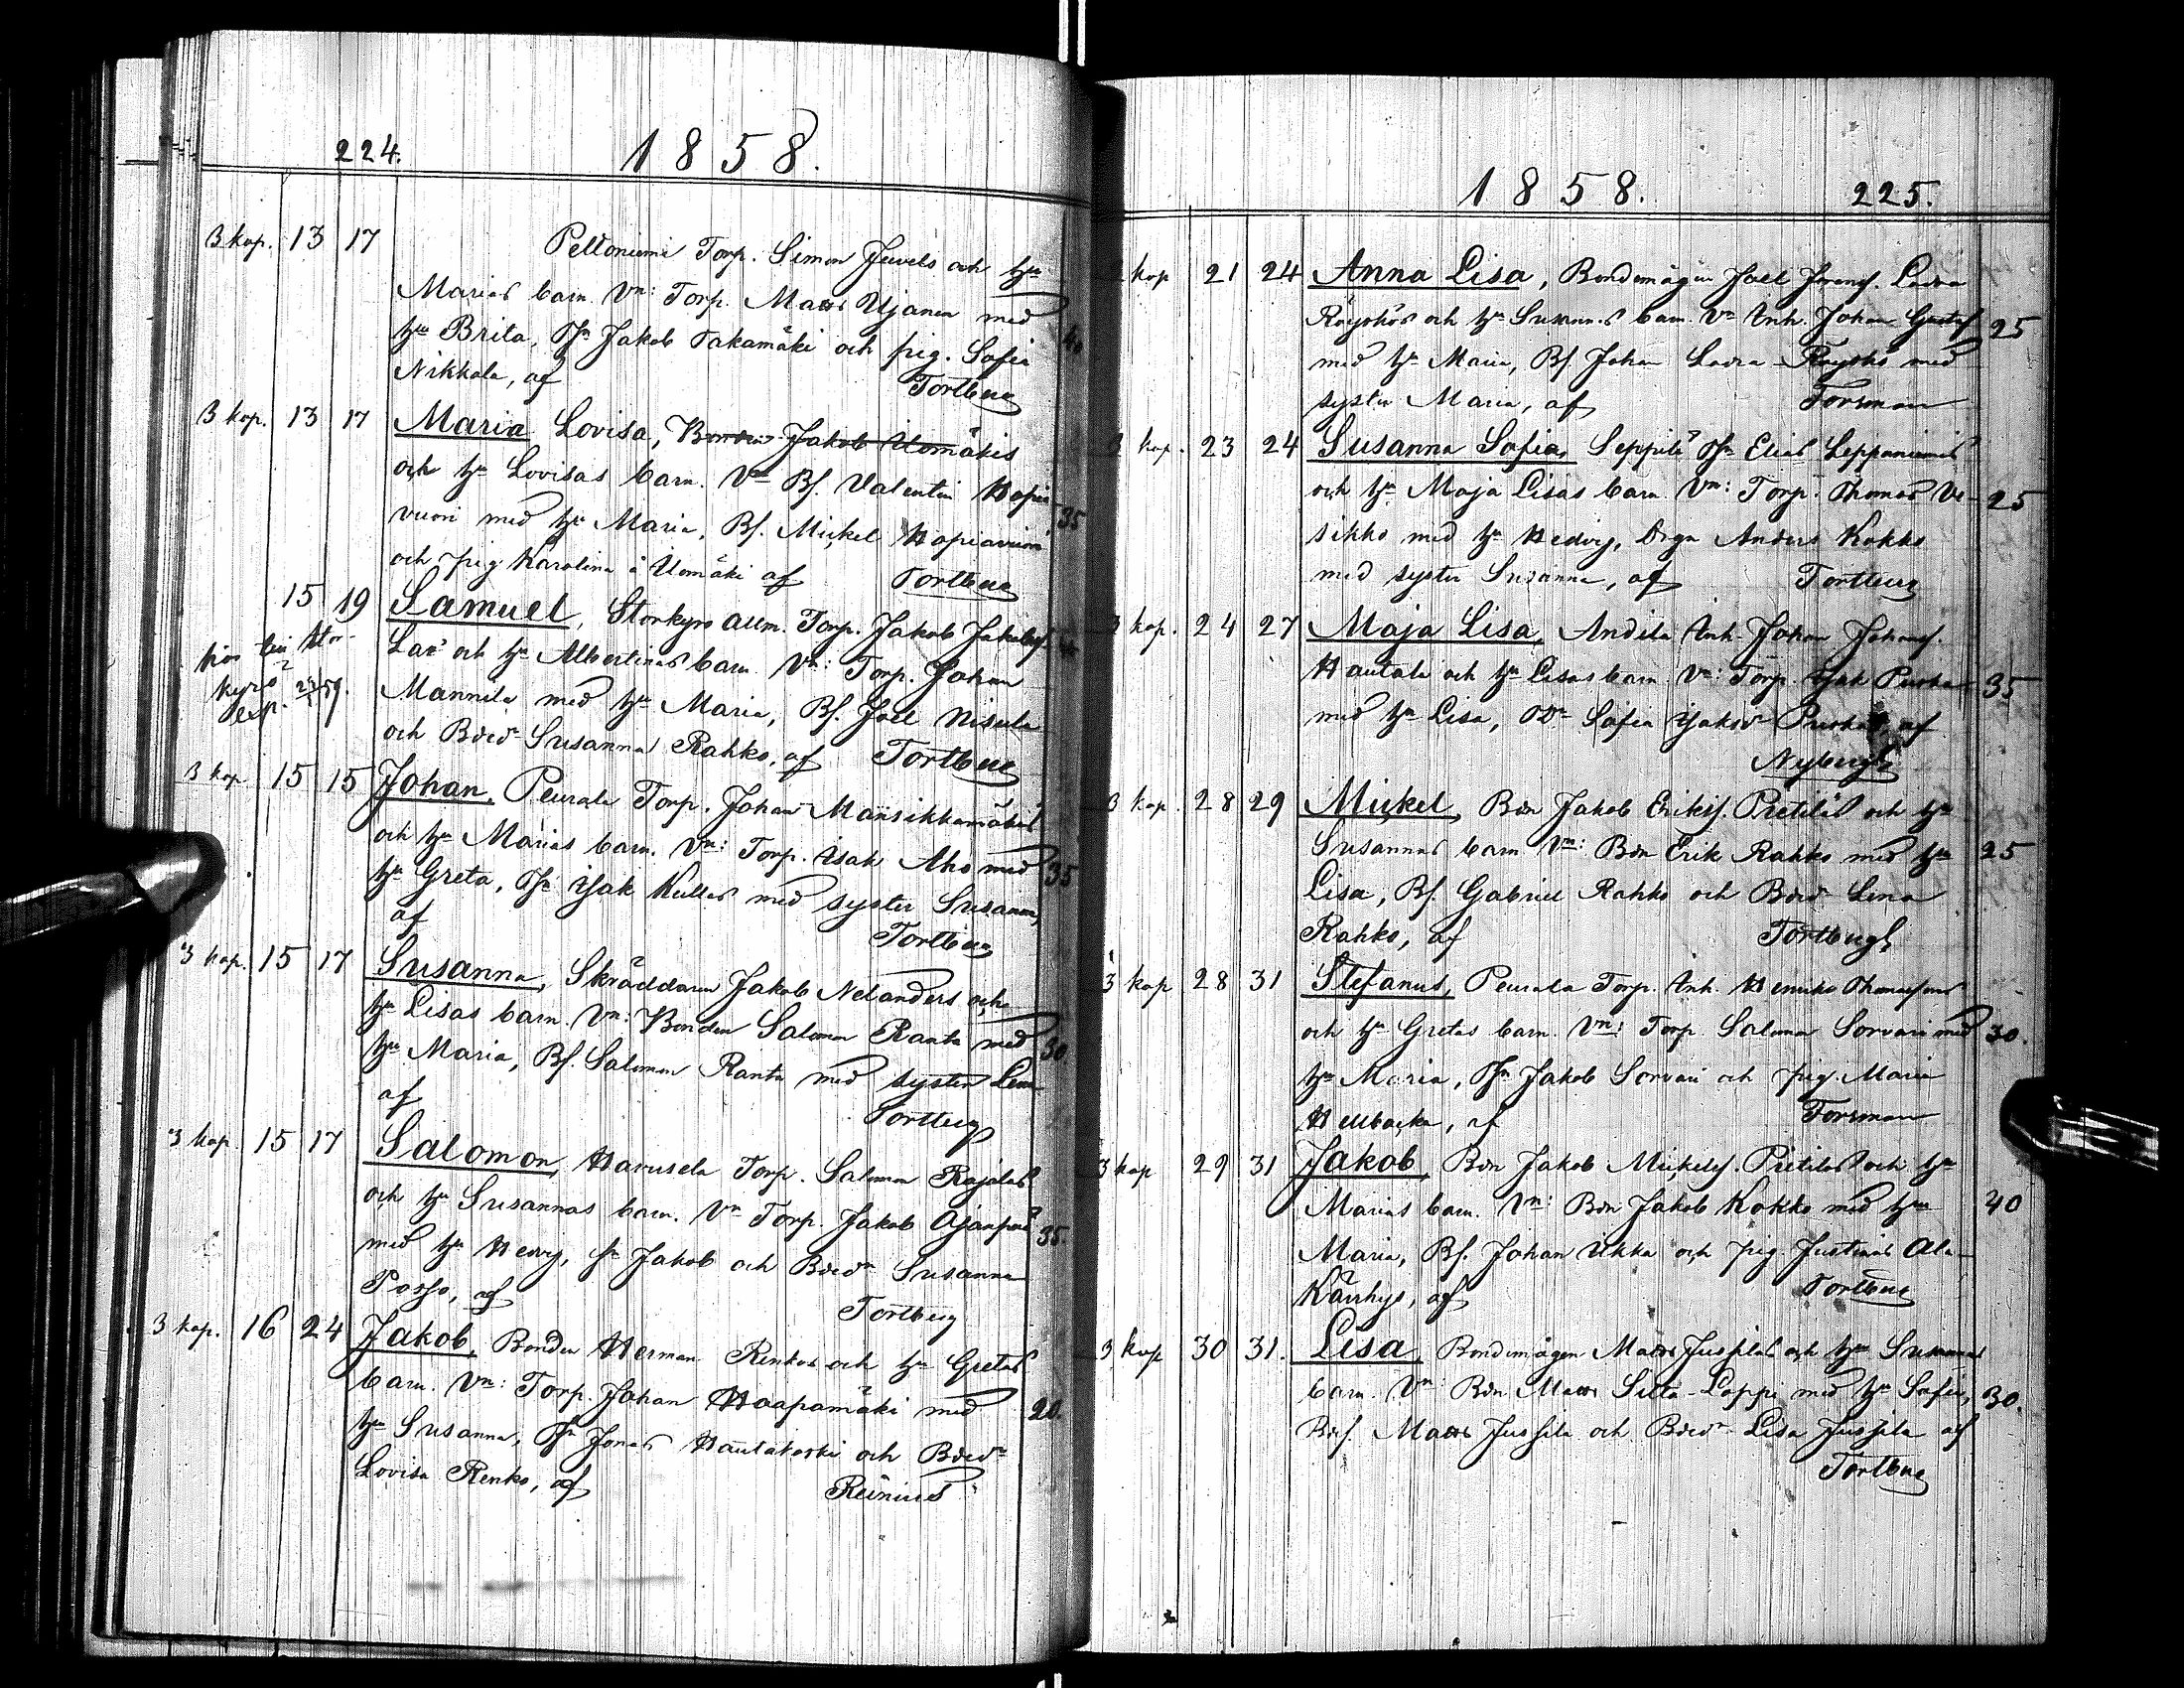 224. 1858.
B kop. 13 17 Peltoniemi Torp. Simon Juvels och hu
Marias barn. Vn: Torp. Matts Ujanen med
hu Brita, Dr Jakob Takamäki och pig. Sofia 40
Nikkola, af Tortberg
B kop. 13 17 Maria Lovisa, Bonden Jakob Uomäkis
och hu Lovisas barn. Vn Bs. Valentin Hopia-
vuori med hu Maria, Bs. Mickel Hopiavuori 35
och pig Karolina å Uomäki af Tortberg
15 19 Samuel, Storkyro allm. Torp. Jakob Jakobss.
hos Stor- och hu Albertinas barn Vn: Torp. Johan
kyro Mannila med hu Maria, Bs. Joel Nisula
exp. och Bdrdr Susanna Rahko, af Tortberg
B kop 15 15 Johan, Peurala Torp. Johan Mansikkamäkis
och hu Marias barn. Vn: Torp. Isak Aho med 35
hu Greta, Dr Isak Kullas med syster Susanna,
af Tortberg
3 kop. 15 17 Susanna, Skräddaren Jakob Nelanders och
hu Lisas barn. Vn: Bonden Salomon Ranta med 30
hu Maria, Bs. Salomon Ranta med syster Lena
af Tortberg
3 kop. 15 17 Salomon, Harusela Torp. Salomon Rajalas
och hu Susannas barn. Vn Torp. Jakob 35.
med hu Hedvig, Jakob och Bdrdr Susanna
af Tortberg
3 kop. 16 24 Jakob, Bonden Herman Renkos och hu Gretas
barn. Vn: Torp. Johan Haapamäki med 20.
hu Susanna, Dr Jonas Hautakoski och Bdrdr
Lovisa Renko, af Reinius
1858. 225.
kop 21 24 Anna Lisa, Bondemågen Joel Ladva
Röyskös och hu Susannas barn. Vn Inh. Johan Gustafs 25
med hu Maria, Bs. Johan Ladva-Röyskö med
syster Maria, af Forsman
3 kop. 23 24 Susanna Sofia, Seppilä Dr Elias Leppäniemis
och hu Maja Lisas barn Vn: Torp. Thomas Ve- 25
sikko med hu Hedvig, Drgn Anders Kokko
med syster Susanna, af Tortberg
3 kop. 24 27 Maja Lisa, Andila Inh. Johan Johanss.
Hautala och hu Lisas barn Vn: Torp. Isak Purka 35
med hu Lisa, Sofia Isaksdr Purka, af
Nybergh
3 kop. 28 29 Mickel, Bdn Jakob Erikss. Pietiläs och hu
Susannas barn Vn: Bdn Erik Rahko med hu 25
Lisa, Bs. Gabriel Rahko och Bdrdr Lena
Rahko, af Tortbergh
3 kop 28 31 Stefanus, Peurala Torp. Inh. Henriks Thomassons
och hu Gretas barn. Vn: Torp. Salomon Sorvari med 30.
hu Maria, Dr Jakob Sorvari och pig. Maria
Hellbacka, af Forsman
3 kop 29 31 Jakob, Bdn Jakob Mickelss. Pietiläs och hu
Marias barn. Vn: Bdn Jakob Kokko med hu 40
Maria, Bs. Johan Ukka och pig. Justina Ala-
Kärrhys, af Tortberg
3 kop 30 31. Lisa, Bondemågen Matts Jussilas och hu Susannas
barn. Vn Bdn Matts Silta-Loppi med hu Sofia, 30.
Bds. Matts Jussila och Bdrdr Lisa Jussila af
Tortberg